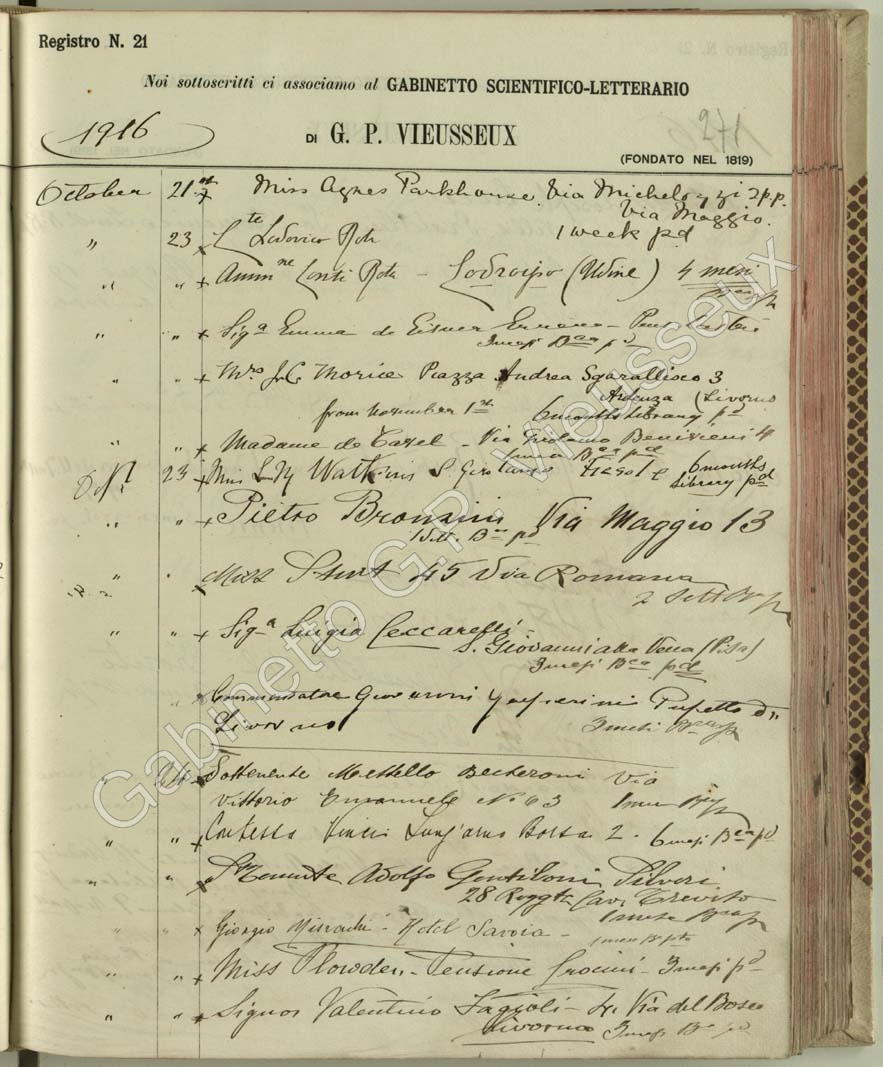 Registro N. 21
Noi sottoscritti ci associamo al GABINETTO SCIENTIFICO-LETTERARIO
1916
271
DI G. P. VIEUSSEUX
(FONDATO NEL 1819)
October 21st Miss Agnes Parkhouse. Via Michelozzi 2 p.p.
Via Maggio.
1 week pd
" 23 Lte Lodovico Rota
" " x Conti Rota - Codroipo (Udine) 4 mesi
" " x Siga Emma de Eisner
3 mesi Bca pd
" " x Mrs J. C. Morice Piazza Andrea Sgarallino 3
Ardenza (Livorno
from November 1st 6 months Library pd
" " x Madame de - Via Girolamo Benivieni 4
1 mese Bca pd
Oct. 23 x Miss L. M. Watkins S. Girolamo Fiesole 6 months
Library pd
" " x Pietro Via Maggio 13
1 Sett. Bca pd
" Miss 45 Via Romana
2 Sett Bca pd
" " x Siga Luigia Ceccarelli
S. Giovanni alla Vena (Pisa)
3 mesi Bca pd
" x Commendatore Giovanni Prefetto di
Livorno 3 mesi Bca pd
" 24 x Sottotenente Metello Via
Vittorio Emanuele No 63 1 mese Bca pd
" " x Contessa Vinci Lung'arno Borsa 2. 6 mesi Bca pd
" " x S. Tenente Adolfo Gentiloni Silveri
28 Reggto Cav. Treviso
1 mese Bca pd
" " x Giorgio Misrachi - Hotel Savoia -
1 mese B pto
" " x Miss Plowden - Pensione Crocini - 3 mesi pd
" " x Signor Valentino Fagioli - 4, Via del Bosco
Livorno 3 mesi Bca pd
Gabinetto G.P. Vieusseux